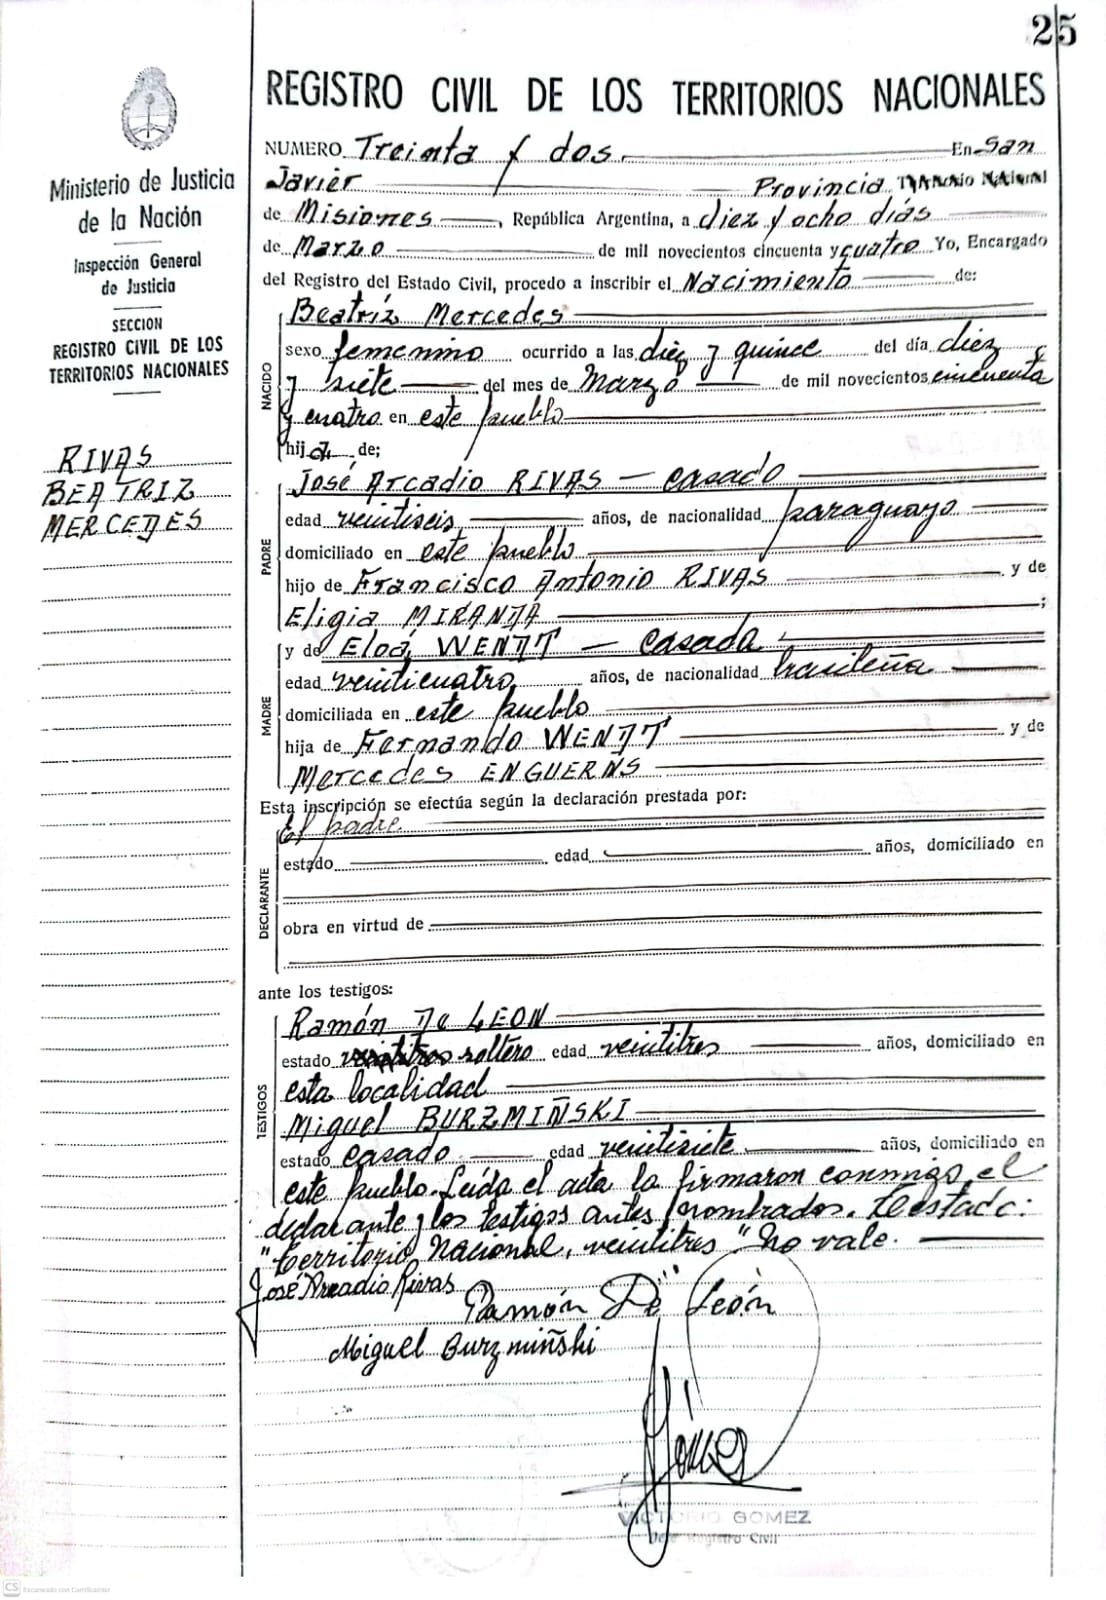 25
REGISTRO CIVIL DE LOS TERRITORIOS NACIONALES
Ministerio de Justicia
de la Nación
Inspección General
de Justicia
SECCION
REGISTRO CIVIL DE LOS
TERRITORIOS NACIONALES
RIVAS
BEATRIZ
MERCEDES
NUMERO Treinta y dos En San
Javier Provincia Territorio Nacional
de Misiones, República Argentina, a diez y ocho días
de Marzo de mil novecientos cincuenta y cuatro Yo, Encargado
del Registro del Estado Civil, procedo a inscribir el Nacimiento de:
NACIDO
Beatríz Mercedes
sexo femenino ocurrido a las diez y quince del día diez
y siete del mes de Marzo de mil novecientos cincuenta
y cuatro en este pueblo
hija de;
PADRE
José Arcadio RIVAS - casado
edad veintiseis años, de nacionalidad paraguayo
domiciliado en este pueblo
hijo de Francisco Antonio RIVAS y de
Eligia MIRANDA ;
MADRE
y de Eloá WENDT - casada
edad veinticuatro años, de nacionalidad brasileña
domiciliada en este pueblo
hija de Fernando WENDT y de
Mercedes ENGUERNS
Esta inscripción se efectúa según la declaración prestada por:
DECLARANTE
El padre
estado edad años, domiciliado en
obra en virtud de
ante los testigos:
TESTIGOS
Ramón De LEON
estado veintitres soltero edad veintitres años, domiciliado en
esta localidad
Miguel BURZMIÑSKI
estado casado edad veintisiete años, domiciliado en
este pueblo. Leída el acta la firmaron conmigo el
declarante y los testigos antes nombrados. Testado:
"Territorio Nacional, veintitres" No vale.
José Arcadio Rivas
Ramón De León
Miguel Burzmiñski
Gómez
VICTORIO GOMEZ
Jefe Registro Civil
CS Escaneado con CamScanner